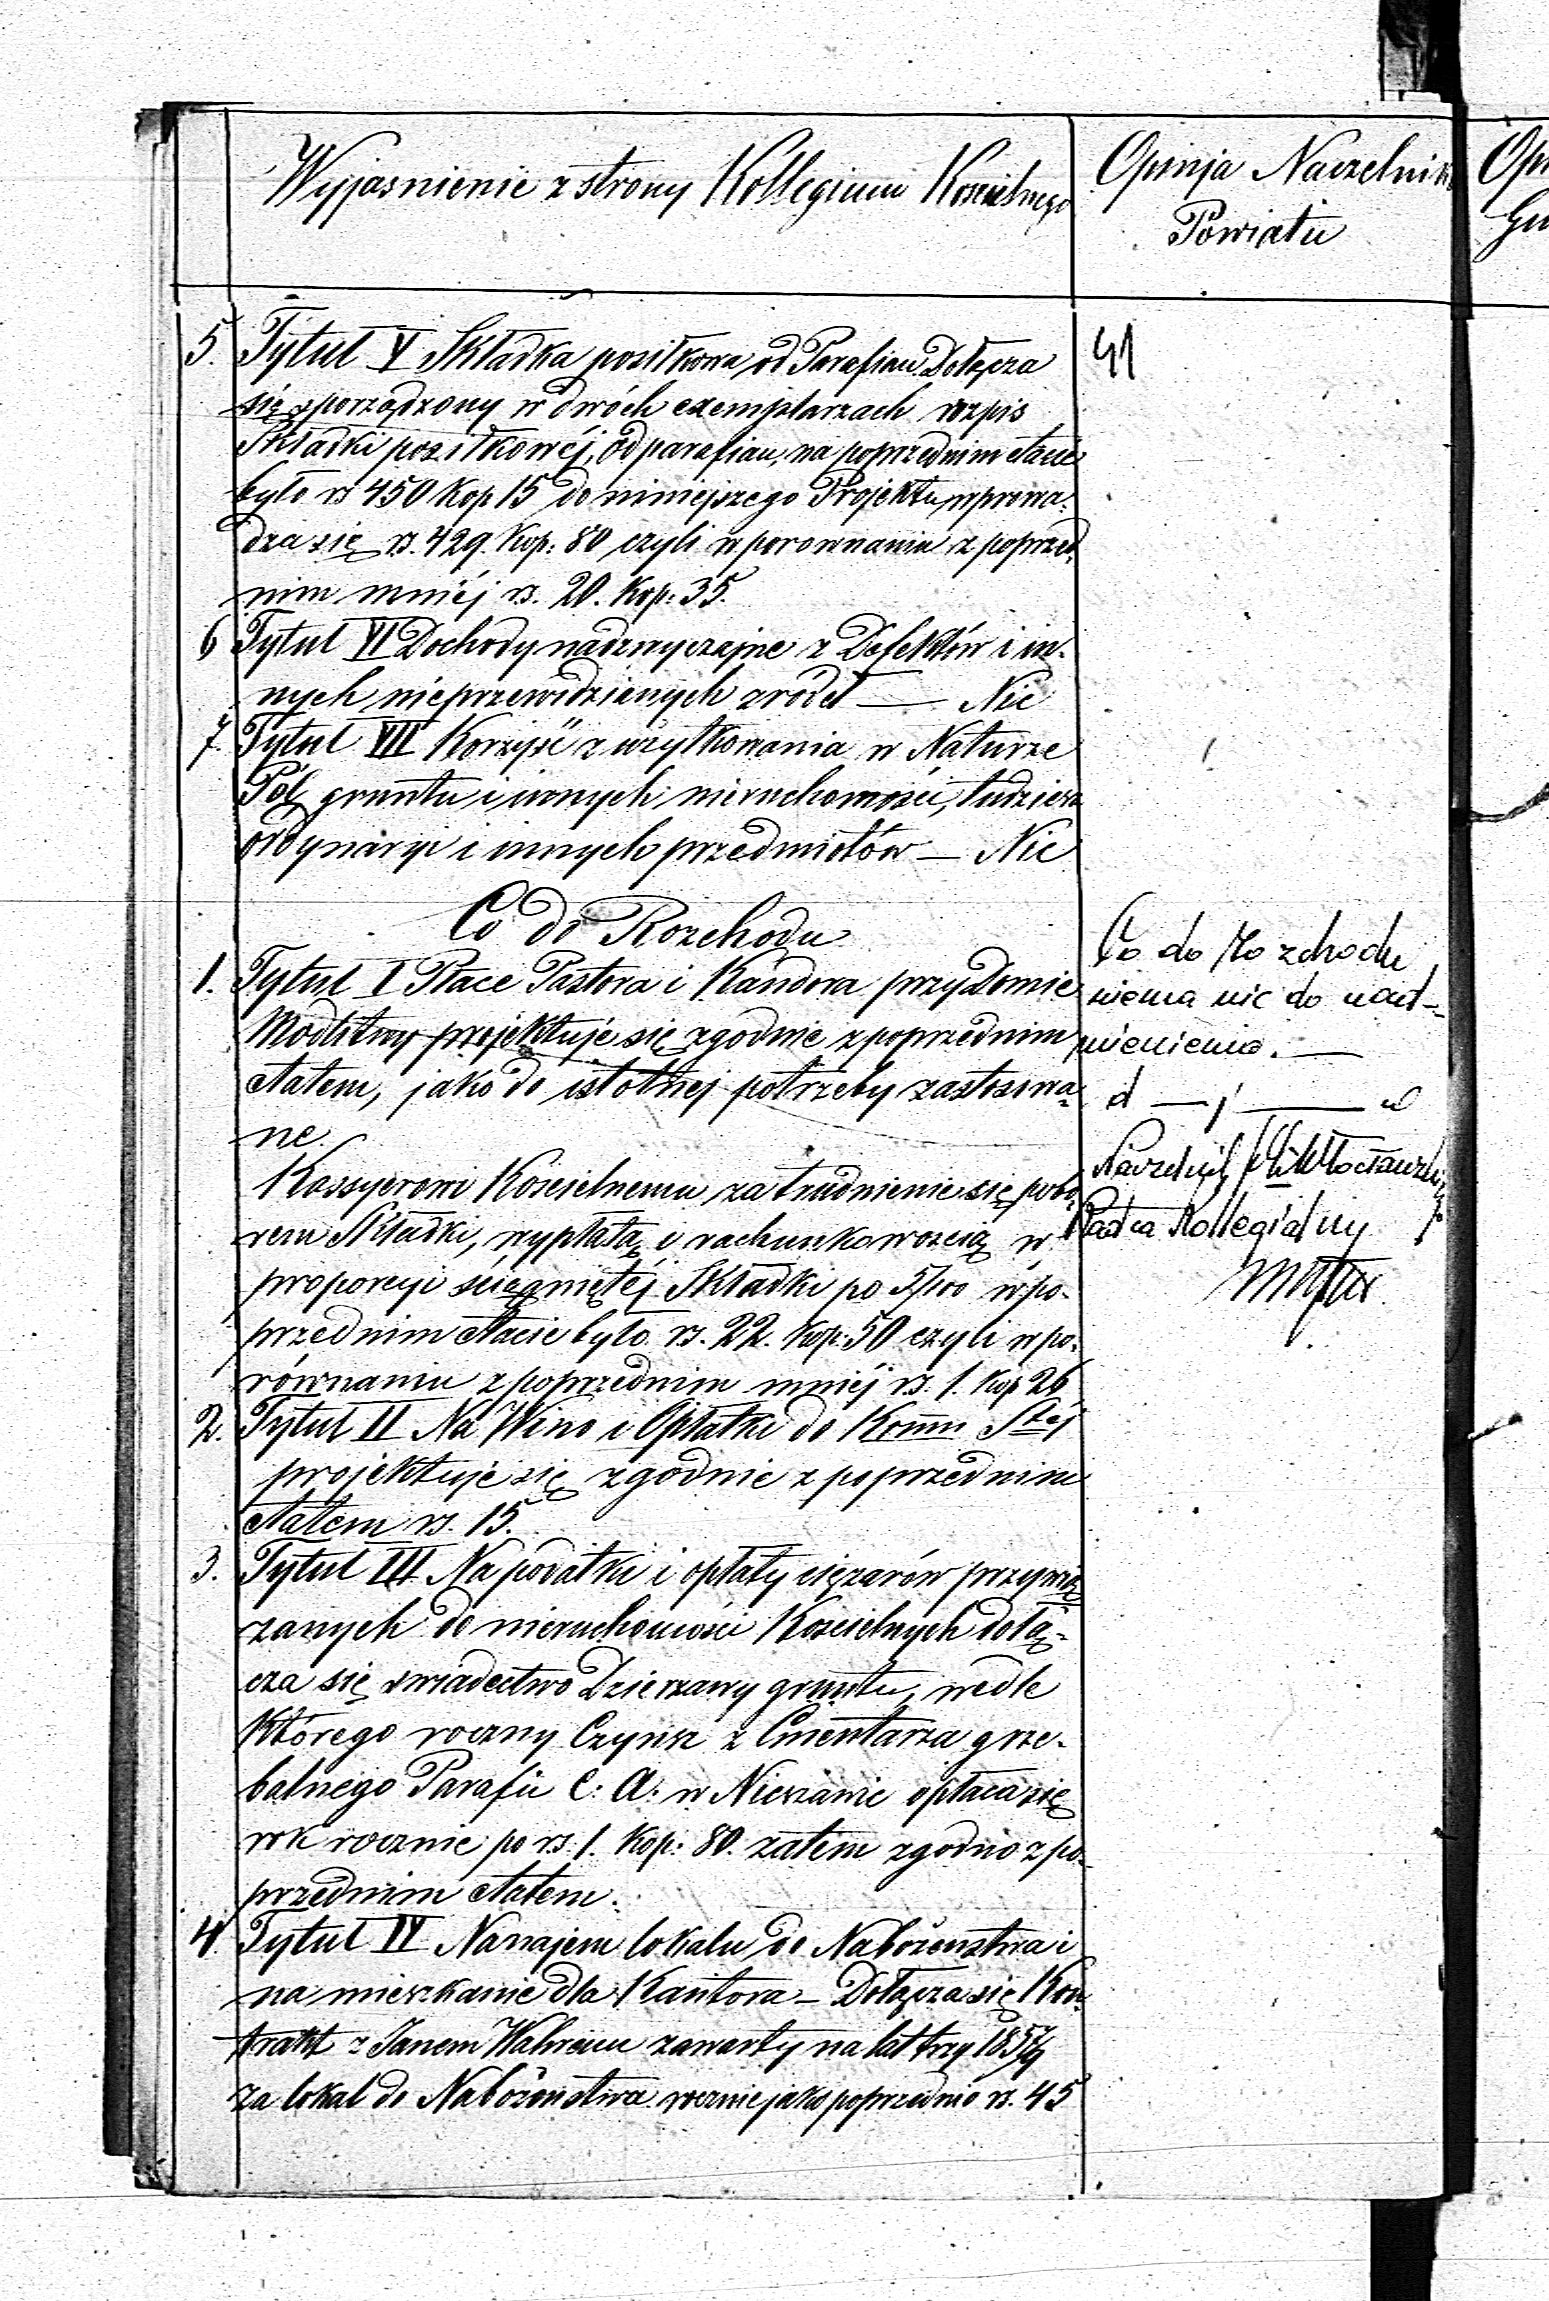 Wyjasnienie z strony Kollegium Kościelnego
Opinja Naczelnika
Powiatu
5. Tytuł V Składka posiłkowa od Parafian. Dołącza
się sporządzony w dwóch exemplarzach rozpis
Składki posiłkowéj, od parafian, na poprzednim etacie
było rs 450 Kop 15 do niniejszego Projektu wprowa-
dza się rs. 429. Kop: 80 czyli w porownaniu z poprzed-
nim mniéj rs. 20. Kop: 35.
6 Tytuł VI Dochody nadzwyczajne z Defektów i in-
nych nieprzewidzianych zródeł — Nic
7. Tytuł VII Korzyść z użytkowania w Naturze
Pól, gruntu i innych nieruchomości, tudziesz
ordynaryi i innych przedmiotów — Nic
Co do Rozchodu
1. Tytuł I Płace Pastora i Kandora przy Domie
Modlitwy projektuje się zgodnie z poprzednim
etatem, jako do istotnej potrzeby zastosowa-
ne.
Kassyerowi Kościelnemu zatrudnienie się pobo-
rem Składki, wypłatą i rachunkowością w
proporcyi ściągniętéj Składki po 5/100 w po-
przednim etacie było rs. 22. Kop: 50 czyli w po-
równaniu z poprzednim mniéj rs. 1. Kop 26
2. Tytuł II Na Wino i Opłatki do Komm Stéj
projektuje się zgodnie z poprzednim
etatem rs. 15.
3. Tytuł III Na podatki i opłaty ciężarów przywią-
zanych do nieruchomości Kościelnych dołą-
cza się swiadectwo Dzierzawy gruntu, wedle
którego roczny Czynsz z Cmentarza grze-
balnego Parafii E: A: w Nieszawie opłaca się
rok rocznie po rs. 1. Kop: 80. zatem zgodno z po-
przednim etatem.
4. Tytuł IV Na najem lokalu do Nabożeństwa i
na mieszkanie dla Kantora — Dołącza się Kon-
trakt z Janem zawarty na lat trzy 1857/9
za lokal do Nabożeństwa rocznie jako poprzednio rs. 45
41
Co do Rozchodu
niema nic do nad-
mienienia. —
Naczelnik Włocławski
Radca Kollegialny